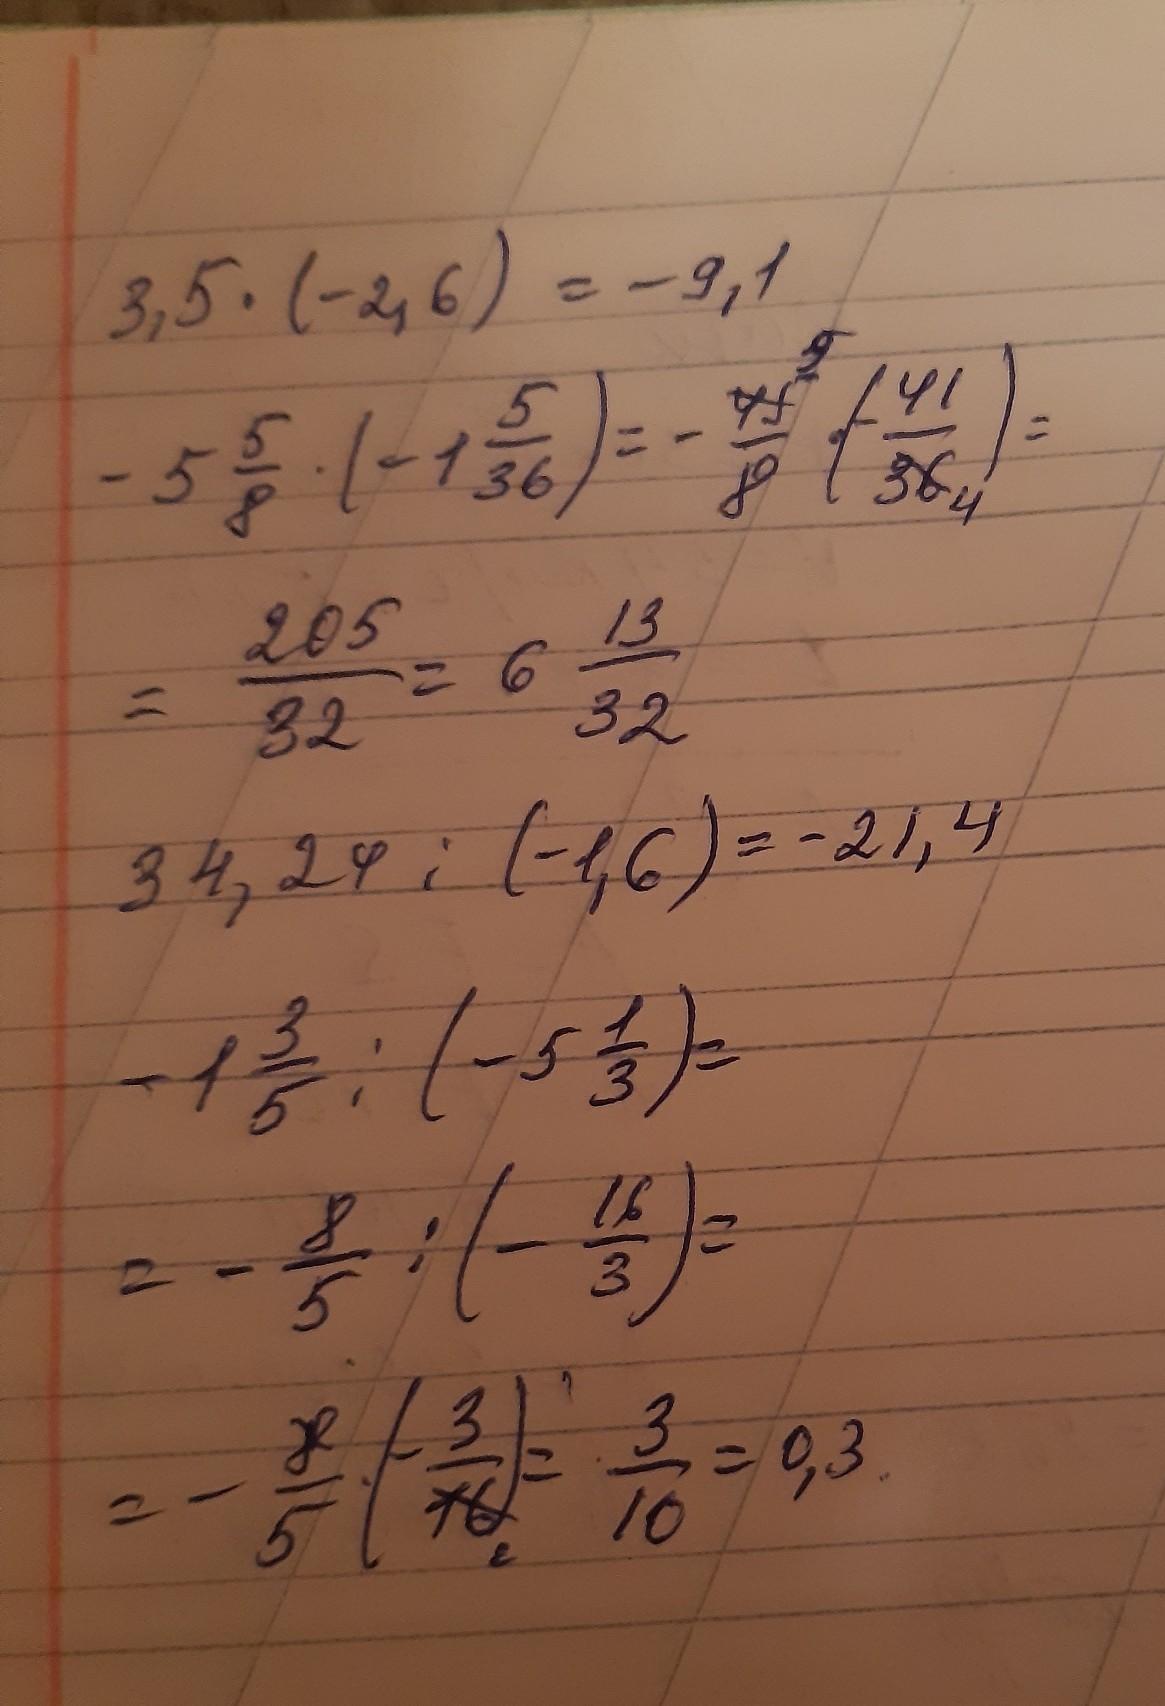 3,5 · (-2,6) = -9,1
-5 5/8 · (-1 5/36) = - 45/8 5 · (- 41/36 4) =
= 205/32 = 6 13/32
34,24 : (-1,6) = -21,4
-1 3/5 : (-5 1/3) =
= - 8/5 : (- 16/3) =
= - 8/5 · (- 3/16 2) = 3/10 = 0,3